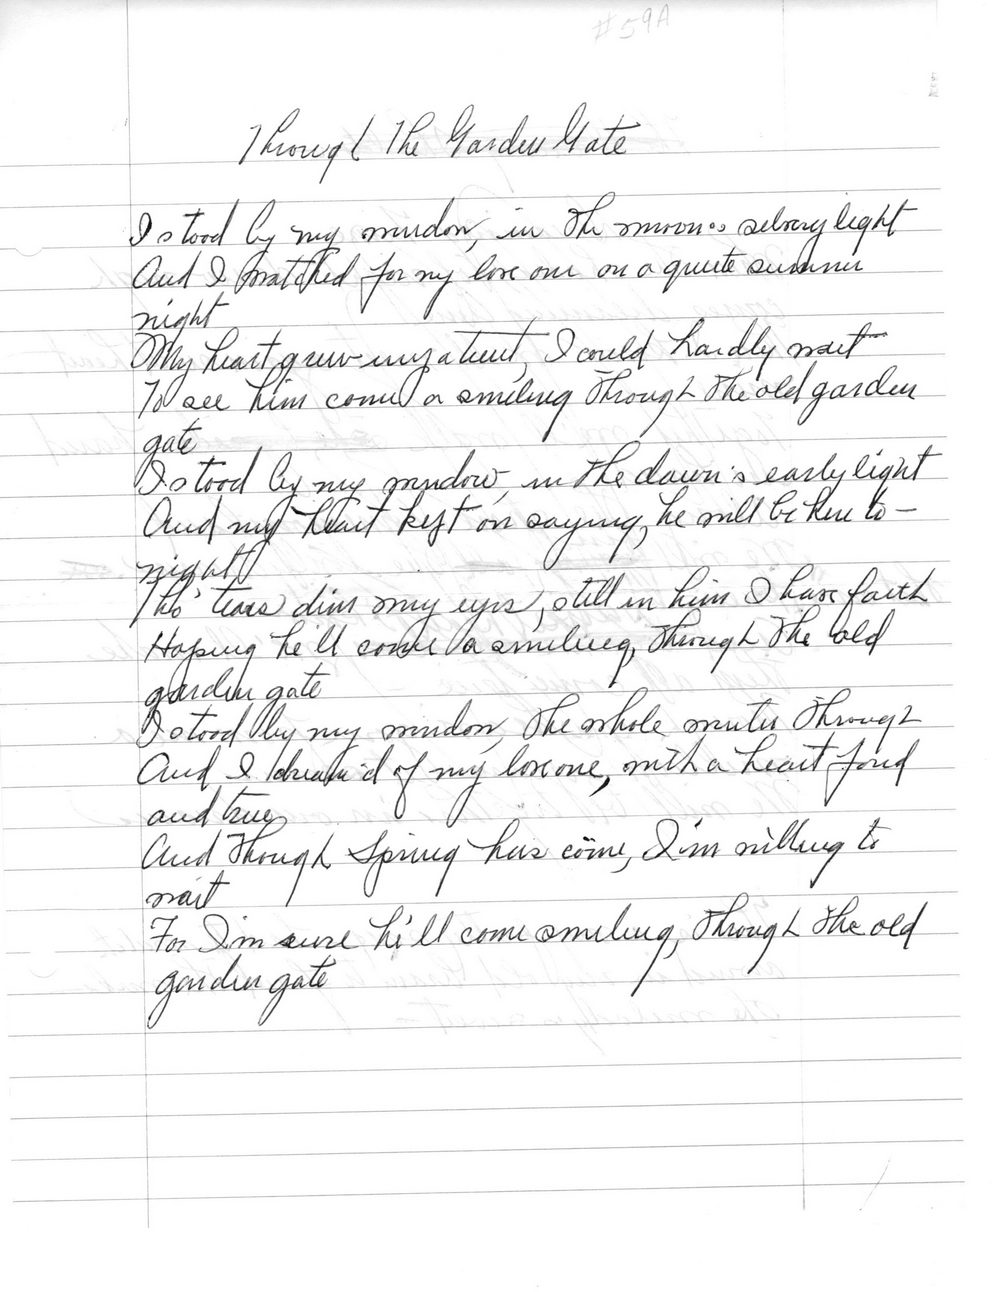 #59A
Through The Garden Gate
I stood by my window, in the moon's silvery light
And I watched for my love one on a quite summer
night
My heart grew impatient, I could hardly wait
To see him come a smiling through the old garden
gate
I stood by my window, in the dawn's early light
And my heart kept on saying, he will be here to-
night
Tho' tears dim my eyes, still in him I have faith
Hoping he'll come a smiling, through the old
garden gate
I stood by my window, the whole winter through
And I dream'd of my love one, with a heart fond
and true
And though Spring has come, I'm willing to
wait
For I'm sure he'll come smiling, through the old
garden gate